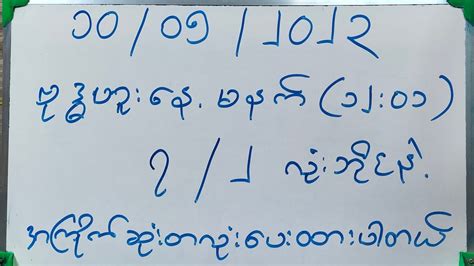 ၁၀ / ၀၅ / ၂၀၂၃
ဗုဒ္ဓဟူးနေ့ မနက် (၁၂:၀၁)
၇ / ၂ လုံးဘိုင်နဲ့
အကြိုက်ဆုံးတလုံးပေးထားပါတယ်